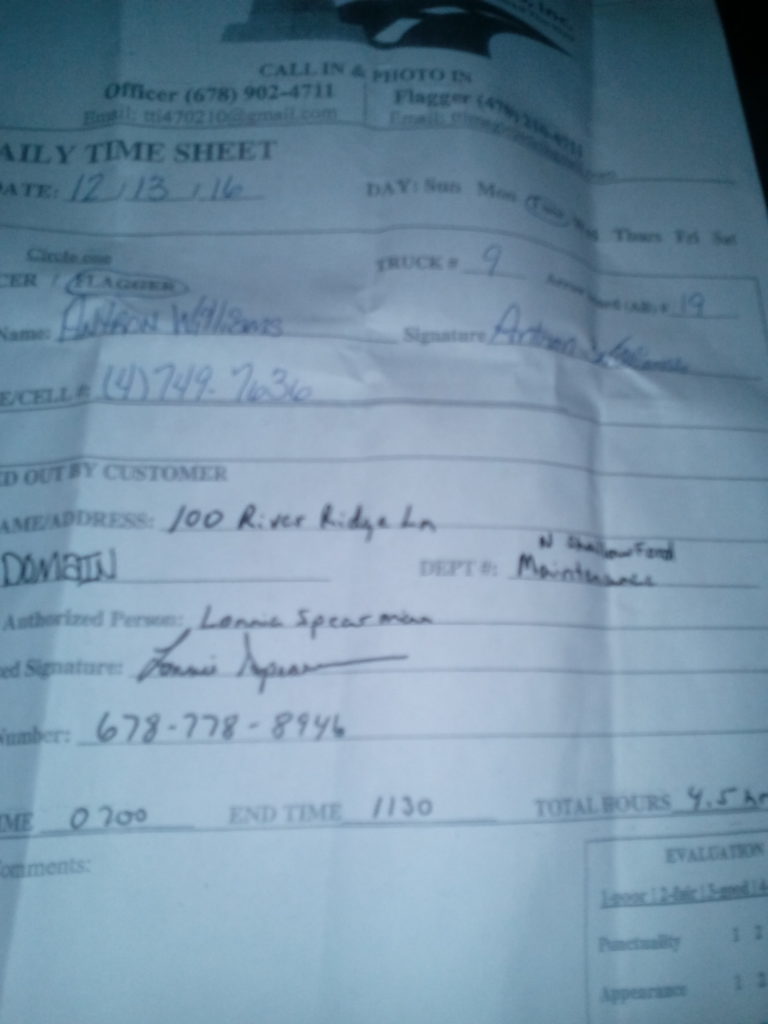 Inc.
CALL IN & PHOTO IN
Officer (678) 902-4711 Flagger
Email: tti470210@gmail.com Email:
AILY TIME SHEET
ATE: 12/13/16 DAY: Sun Mon Tue Wed Thurs Fri Sat
Circle one
CER / FLAGGER TRUCK # 9 19
Name: Williams Signature
E/CELL #: (4)749-7636
ED OUT BY CUSTOMER
AME/ADDRESS: 100 River Ridge Ln
N Shallowford
DOMAIN DEPT #: Maintenance
Authorized Person: Lonnie Spearman
ed Signature: Lonnie
Number: 678-778-8946
IME 0700 END TIME 1130 TOTAL HOURS 4.5 hr
omments:
EVALUATION
1-poor | 2-fair | 3-good | 4
Punctuality 1 2
Appearance 1 2